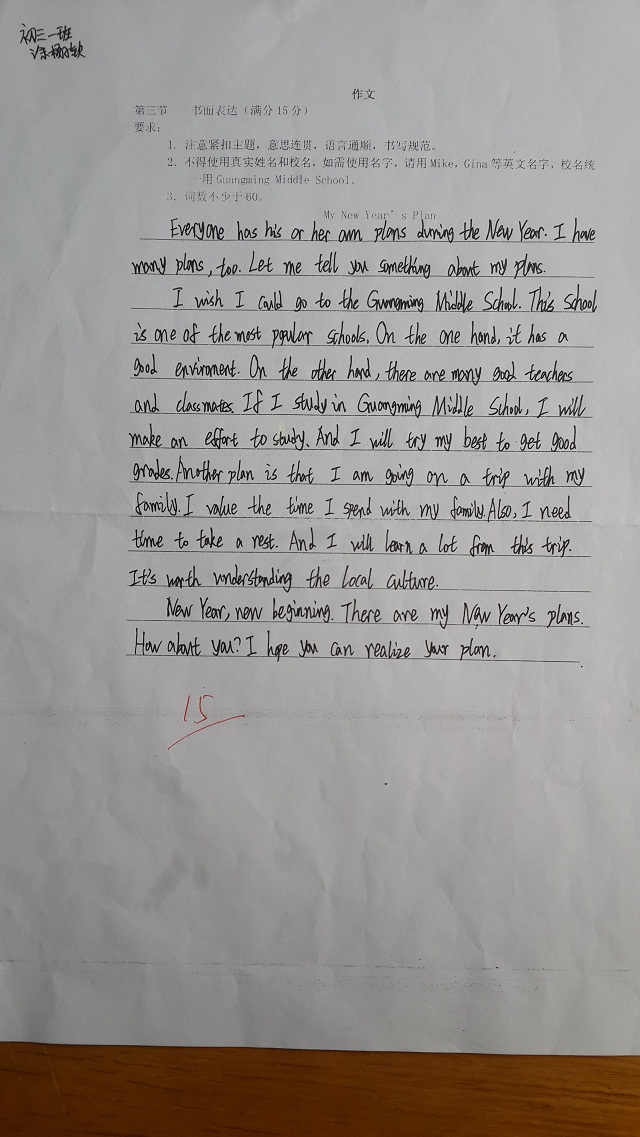 初三一班
作文
第三节 书面表达（满分15分）
要求：
1. 注意紧扣主题，意思连贯，语言通顺，书写规范。
2. 不得使用真实姓名和校名，如需使用名字，请用Mike，Gina等英文名字，校名统
一用Guangming Middle School。
3. 词数不少于60。
My New Year's Plan
Everyone has his or her own plans during the New Year. I have
many plans, too. Let me tell you something about my plans.
I wish I could go to the Guangming Middle School. This school
is one of the most popular schools. On the one hand, it has a
good enviroment. On the other hand, there are many good teachers
and classmates. If I study in Guangming Middle School, I will
make an effort to study. And I will try my best to get good
grades. Another plan is that I am going on a trip with my
family. I value the time I spend with my family. Also, I need
time to take a rest. And I will learn a lot from this trip.
It's worth understanding the local culture.
New Year, new beginning. There are my New Year's plans.
How about you? I hope you can realize your plan.
15